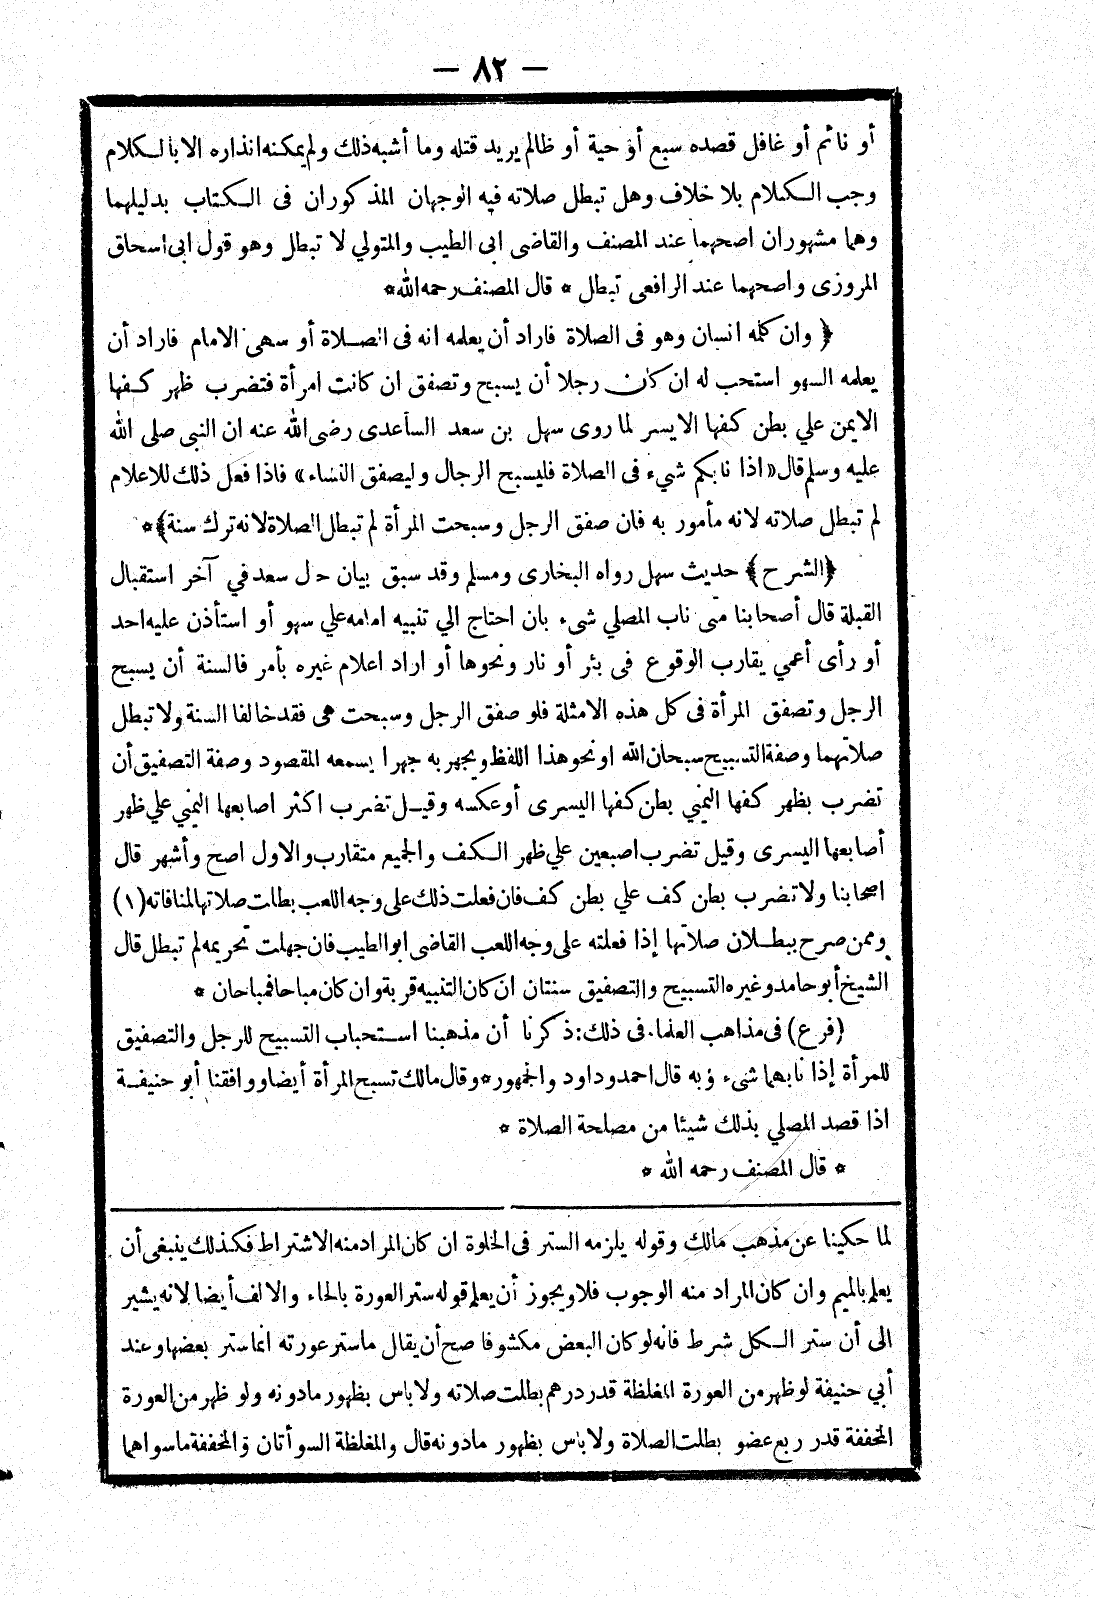 — ٨٢ —
أو نائم أو غافل قصده سبع أو حية أو ظالم يريد قتله وما أشبه ذلك ولم يمكنه انذاره الا بالكلام
وجب الكلام بلا خلاف وهل تبطل صلاته فيه الوجهان المذكوران فى الكتاب بدليلهما
وهما مشهوران اصحهما عند المصنف والقاضى ابى الطيب والمتولي لا تبطل وهو قول ابى اسحاق
المروزى واصحهما عند الرافعى تبطل * قال المصنف رحمه الله*
﴿ وان كلمه انسان وهو فى الصلاة فاراد أن يعلمه انه فى الصلاة أو سهى الامام فاراد أن
يعلمه السهو استحب له ان كان رجلا أن يسبح وتصفق ان كانت امرأة فتضرب ظهر كفها
الايمن علي بطن كفها الايسر لما روى سهل بن سعد الساعدى رضى الله عنه ان النبى صلى الله
عليه وسلم قال «اذا نابكم شيء فى الصلاة فليسبح الرجال وليصفق النساء» فاذا فعل ذلك للاعلام
لم تبطل صلاته لانه مأمور به فان صفق الرجل وسبحت المرأة لم تبطل الصلاة لانه ترك سنة﴾*
﴿الشرح﴾ حديث سهل رواه البخارى ومسلم وقد سبق بيان حال سعد في آخر استقبال
القبلة قال أصحابنا متى ناب المصلي شىء بان احتاج الي تنبيه امامه علي سهو أو استأذن عليه احد
أو رأى أعمي يقارب الوقوع فى بئر أو نار ونحوها أو اراد اعلام غيره بأمر فالسنة أن يسبح
الرجل وتصفق المرأة فى كل هذه الامثلة فلو صفق الرجل وسبحت هى فقد خالفا السنة ولا تبطل
صلاتهما وصفة التسبيح سبحان الله او نحو هذا اللفظ ويجهر به جهرا يسمعه المقصود وصفة التصفيق أن
تضرب بظهر كفها اليمني بطن كفها اليسرى أو عكسه وقيل تضرب اكثر اصابعها اليمني علي ظهر
أصابعها اليسرى وقيل تضرب اصبعين علي ظهر الكف والجميع متقارب والاول اصح وأشهر قال
اصحابنا ولا تضرب بطن كف علي بطن كف فان فعلت ذلك على وجه اللعب بطلت صلاتها لمنافاته (١)
وممن صرح ببطلان صلاتها إذا فعلته على وجه اللعب القاضى ابو الطيب فان جهلت تحريمه لم تبطل قال
الشيخ أبو حامد وغيره التسبيح والتصفيق سنتان ان كان التنبيه قربة وان كان مباحا فمباحان *
(فرع) فى مذاهب العلماء فى ذلك: ذكرنا أن مذهبنا استحباب التسبيح للرجل والتصفيق
للمرأة إذا نابهما شىء وبه قال احمد وداود والجمهور* وقال مالك تسبح المرأة أيضا ووافقنا أبو حنيفة
اذا قصد المصلي بذلك شيئا من مصلحة الصلاة *
* قال المصنف رحمه الله *
لما حكينا عن مذهب مالك وقوله يلزمه الستر فى الخلوة ان كان المراد منه الاشتراط فكذلك ينبغى أن
يعلم بالميم وان كان المراد منه الوجوب فلا ويجوز أن يعلم قوله ستر العورة بالحاء والالف أيضا لانه يشير
الى أن ستر الكل شرط فانه لو كان البعض مكشوفا صح أن يقال ماستر عورته انما ستر بعضها وعند
أبي حنيفة لو ظهر من العورة المغلظة قدر درهم بطلت صلاته ولا باس بظهور ما دونه ولو ظهر من العورة
المخففة قدر ربع عضو بطلت الصلاة ولا باس بظهور ما دونه قال والمغلظة السوأتان والمخففة ما سواهما